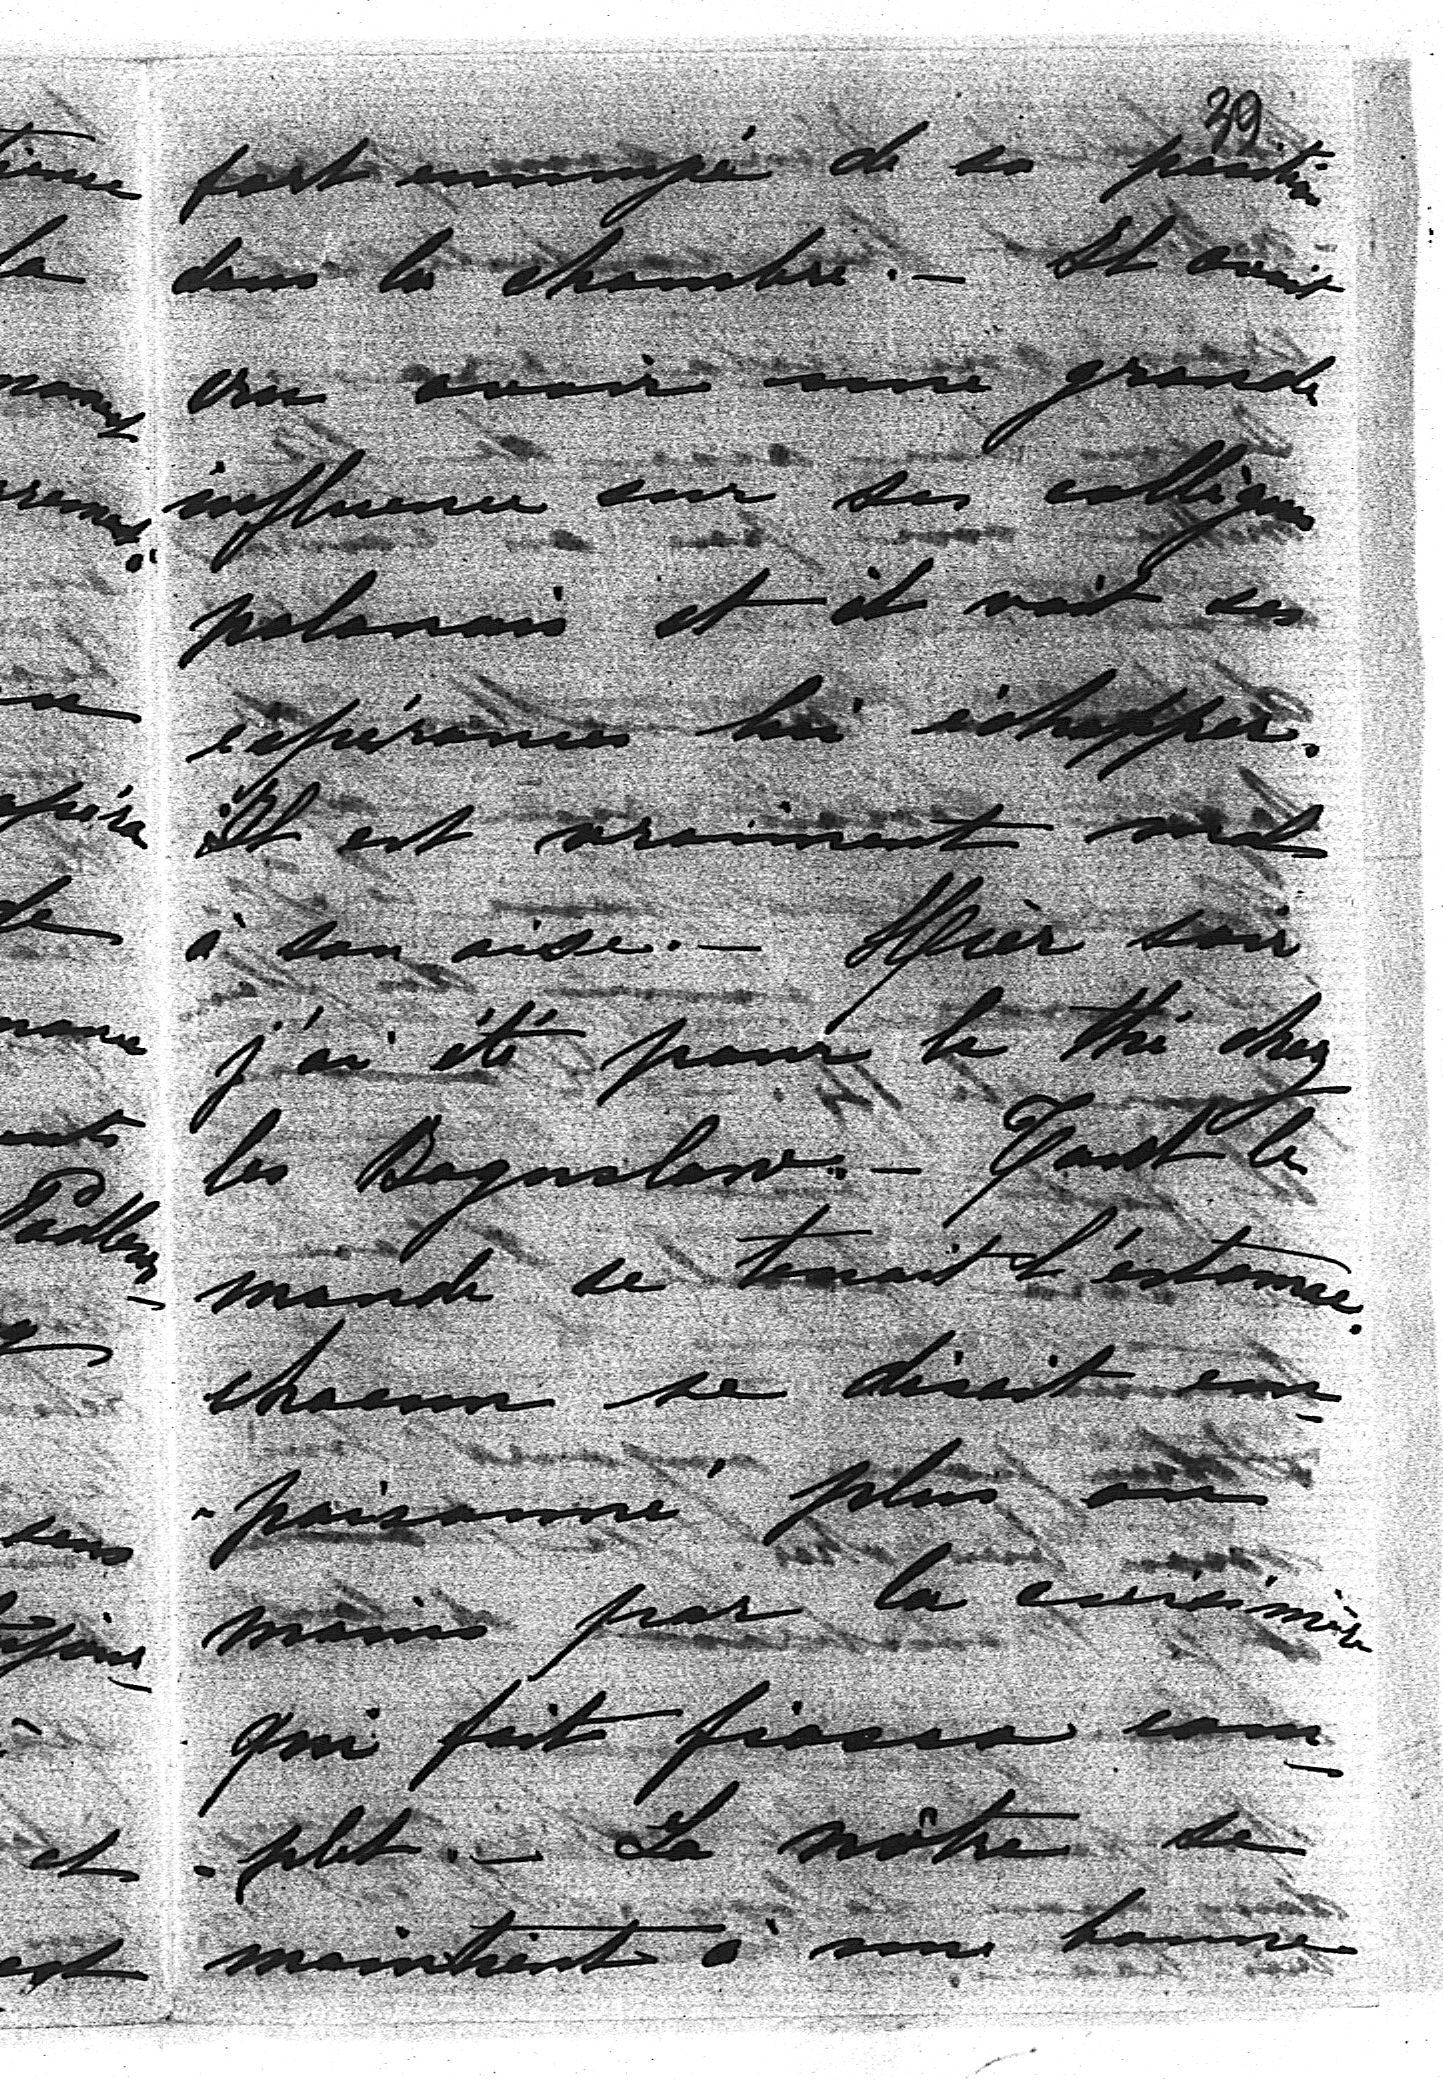 39
fort ennuyé de sa position
dans la chambre. — Il avait
cru avoir une grande
influence sur ses collègues
polonais et il voit ses
espérances lui échapper.
Il est vraiment mal
à son aise. — Hier soir
j'ai été pour le thé chez
les Boguslaw. — Tout le
monde se tenait l'estomac.
chacun se disait em-
-poisonné plus ou
moins par la cuisinière
qui fait fiasco com-
-plèt. — La nôtre se
maintient à une bonne